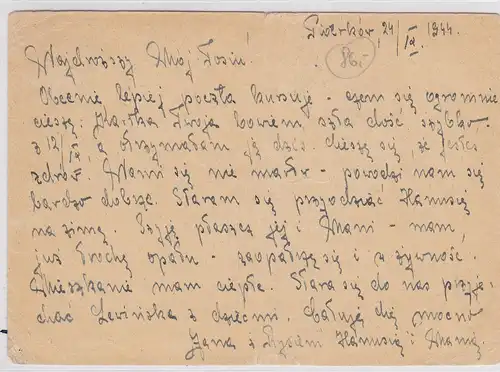 Piotrków, 24/IX. 1944.
86,-
Najdroższy Mój Tosiu!
Obecnie lepiej poczta kursuje - czem się ogromnie
cieszę. Kartka Twoja bowiem szła dość szybko
z 12/IX, a otrzymałam ją dziś. Cieszę się, że jesteś
zdrów. Nami się nie martw - powodzi nam się
bardzo dobrze. Staram się przyodziać Hanusię
na zimę. Szyję płaszcz jej i Mani - mam
już trochę opału - zaopatruję się i w żywność.
Mieszkanie mam ciepłe. Stara się do nas przyje-
chać Lewińska z dziećmi. Całuję Cię mocno
Jana z Rysiem Hanusią i Manią.